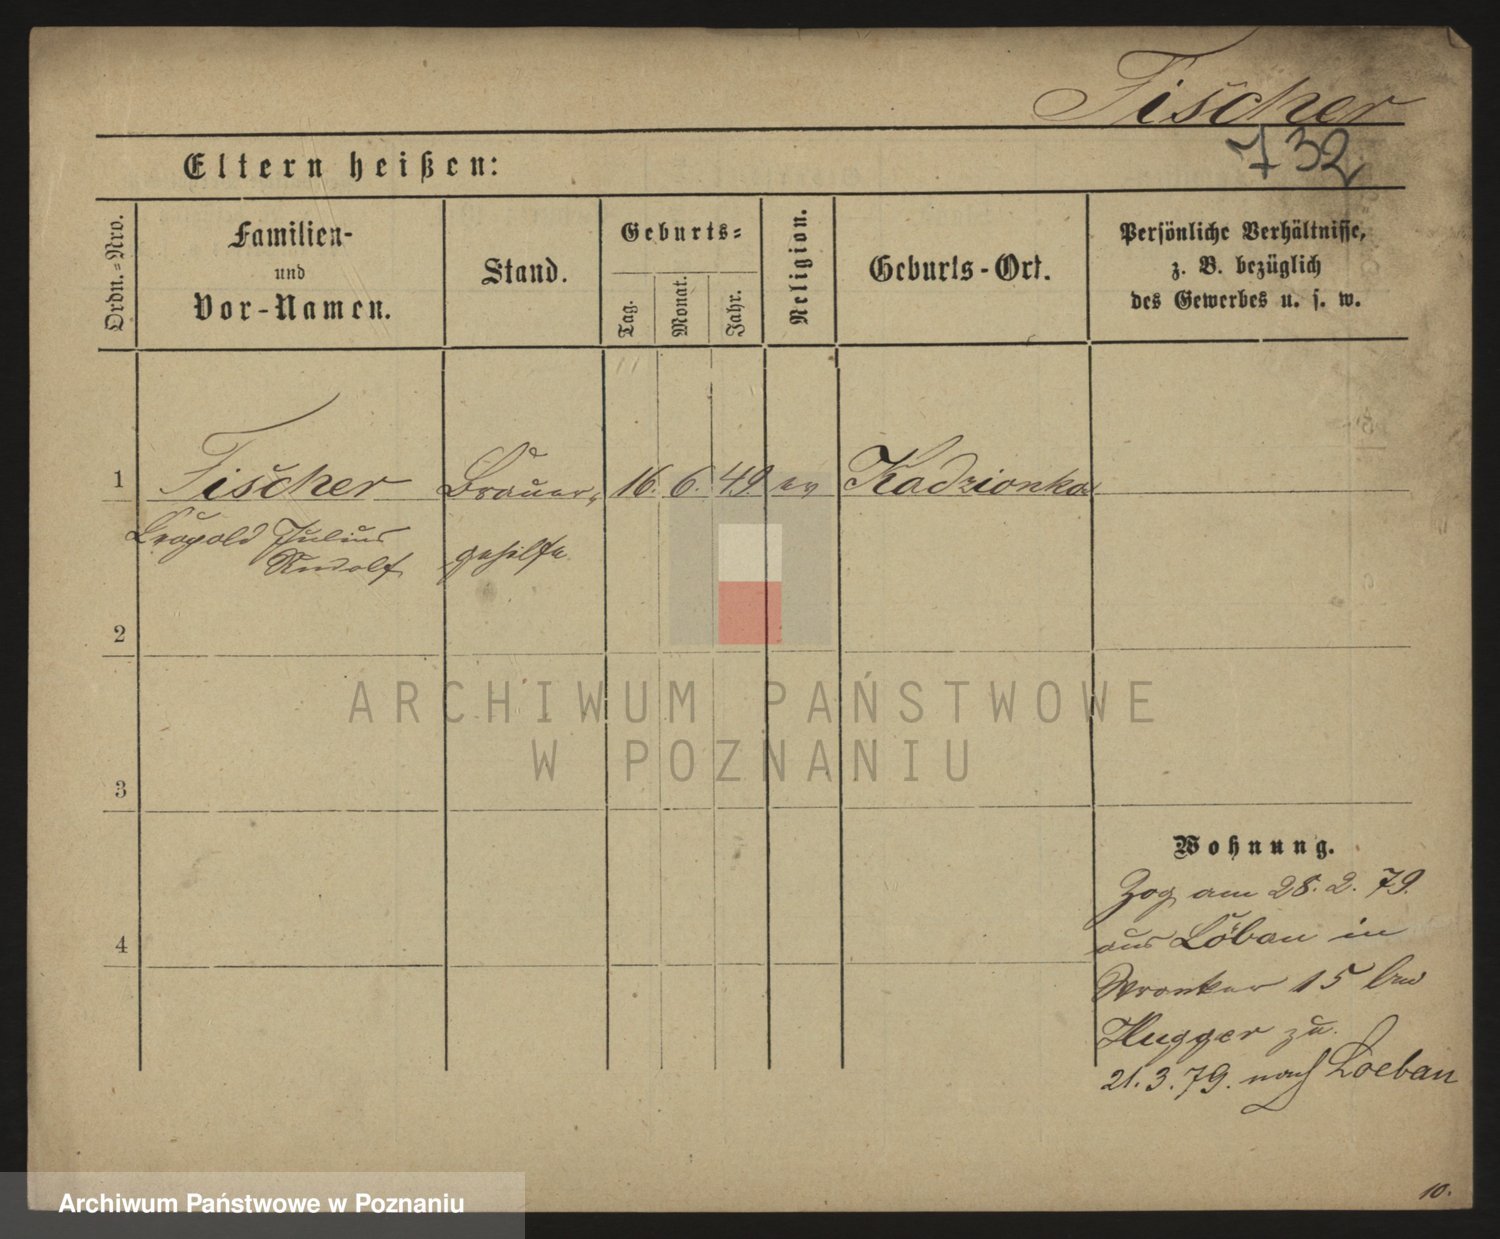 Fischer
732
Eltern heißen:
Ordn.=Nro.
Familien-
und
Vor-Namen.
Stand.
Geburts=
Tag.
Monat.
Jahr.
Religion.
Geburts-Ort.
Persönliche Verhältnisse,
z. B. bezüglich
des Gewerbes u. s. w.
1 Fischer Brauer- 16. 6. 49. ev Kadzionka
Leopold Julius
Rudolf gehilfe
2
3
4
Wohnung.
Zog am 28. 2. 79.
aus Löbau in
Wronker 15 bei
Hugger zu.
21. 3. 79. nach Loebau
10.
ARCHIWUM PAŃSTWOWE
W POZNANIU
Archiwum Państwowe w Poznaniu